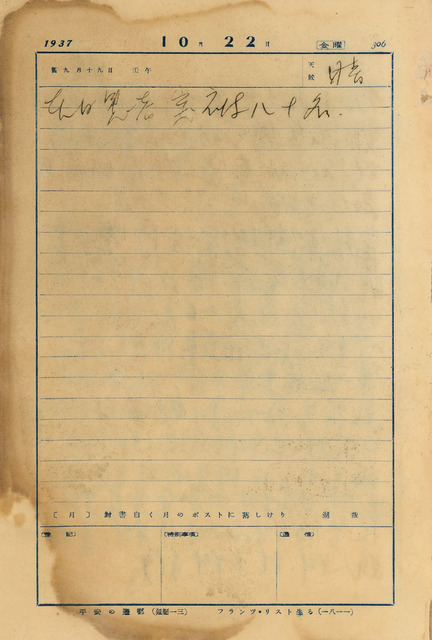 1937 10月22日 金曜 306
舊九月十九日 壬午 天候 晴
本日患者 八十名.
〔月〕封書白く月のポストに落しけり
登記 特別事項 通信
平安の遷都 フランツ・リスト生る(一八一一)